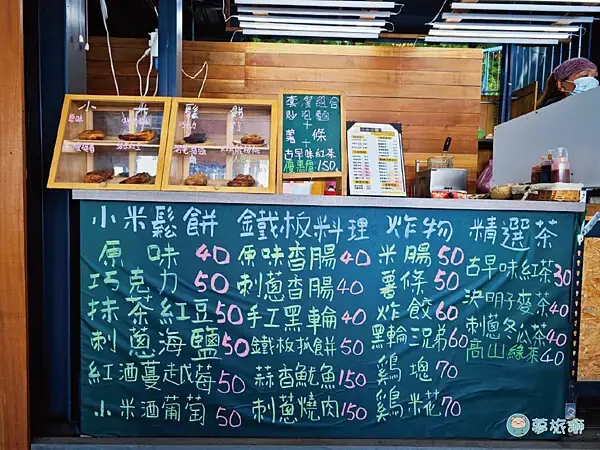 小 米 鬆 餅
原味
套餐組合
+
薯 條
+
古早味紅茶
優惠價150
小米鬆餅 鐵板料理 炸物 精選茶
原味 40 原味香腸 40 米腸 50 古早味紅茶 30
巧克力 50 刺蔥香腸 40 薯條 50 決明子麥茶 40
抹茶紅豆 50 手工黑輪 40 炸餃 60 刺蔥冬瓜茶 40
刺蔥海鹽 50 鐵板抓餅 50 黑輪三兄弟 60 高山綠茶 40
紅酒蔓越莓 50 蒜香魷魚 150 鷄塊 70
小米酒葡萄 50 刺蔥燒肉 150 鷄米花 70
夢旅獅